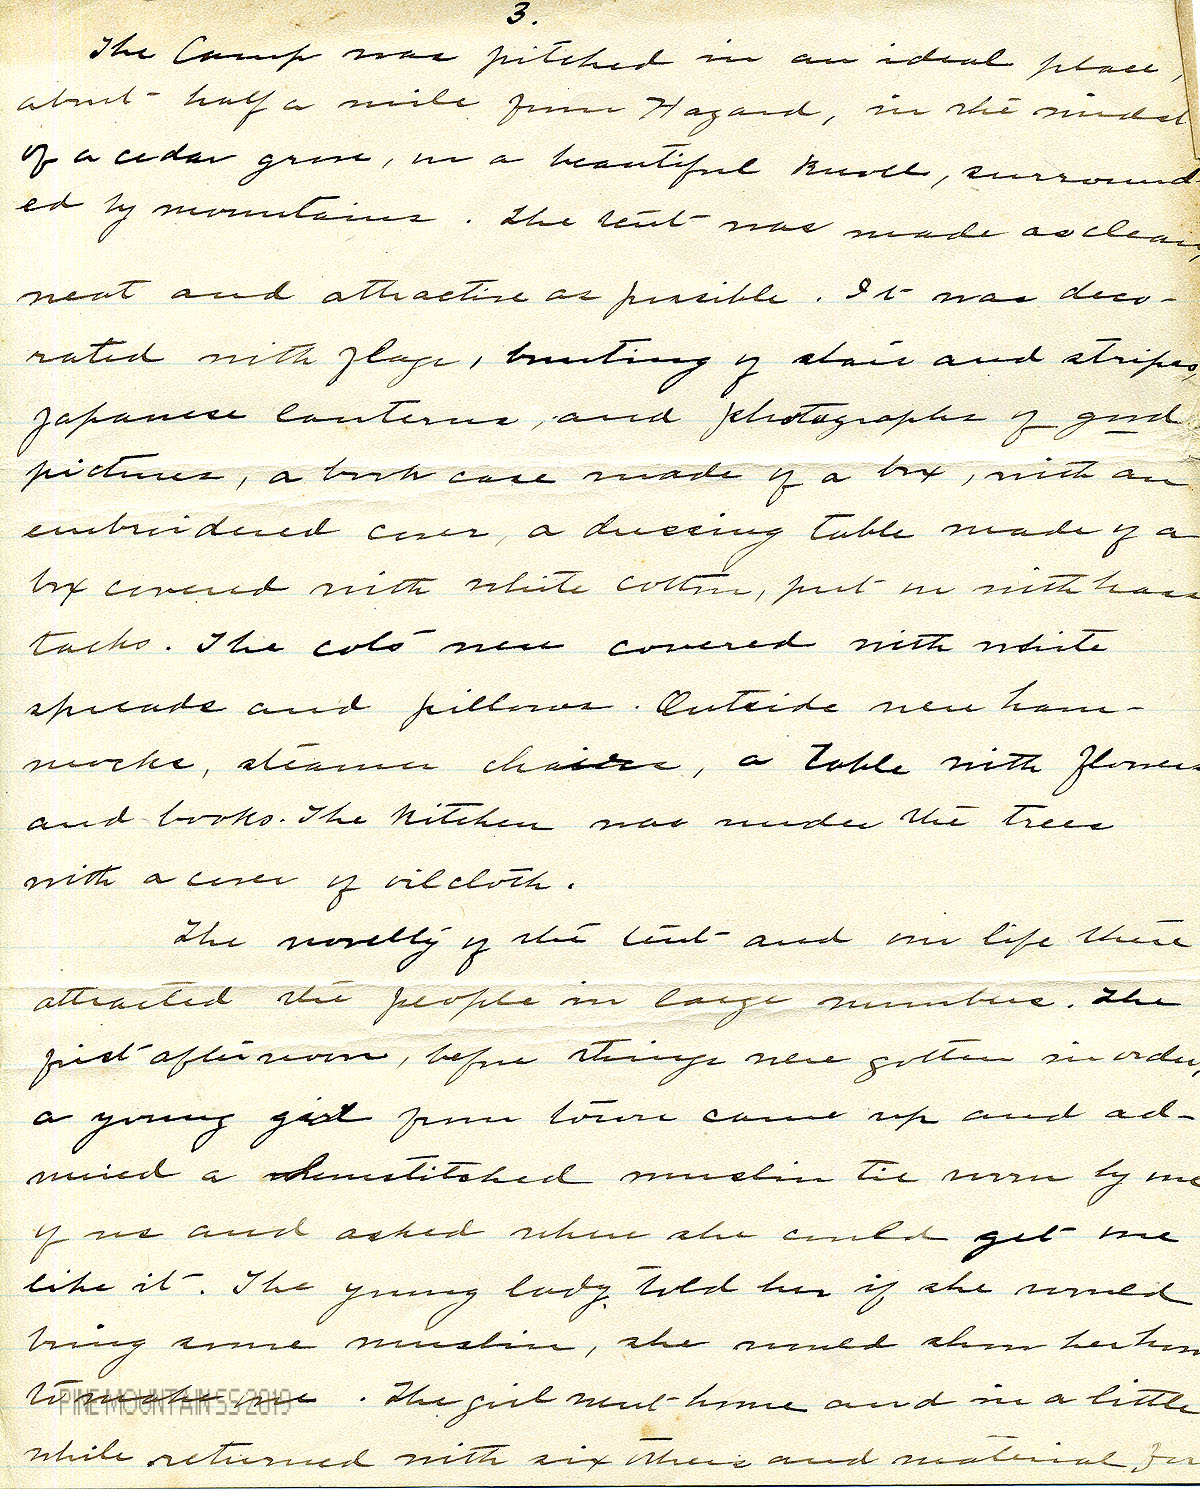 3.
The Camp was pitched in an ideal place,
about half a mile from Hazard, in the midst
of a cedar grove, on a beautiful knoll, surround-
ed by mountains. The tent was made as clean,
neat and attractive as possible. It was deco-
rated with flags, bunting of stars and stripes,
Japanese lanterns, and photographs of good
pictures, a book case made of a box, with an
embroidered cover, a dressing table made of a
box covered with white cotton, put on with brass
tacks. The cots were covered with white
spreads and pillows. Outside were ham-
mocks, steamer chairs, a table with flowers
and books. The kitchen was under the trees
with a cover of oilcloth.
The novelty of the tent and our life there
attracted the people in large numbers. The
first afternoon, before things were gotten in order,
a young girl from town came up and ad-
mired a hemstitched muslin tie worn by one
of us and asked where she could get one
like it. The young lady told her if she would
bring some muslin, she would show her how
to make one. The girl went home and in a little
while returned with six others and material for
PINE MOUNTAIN SS 2019